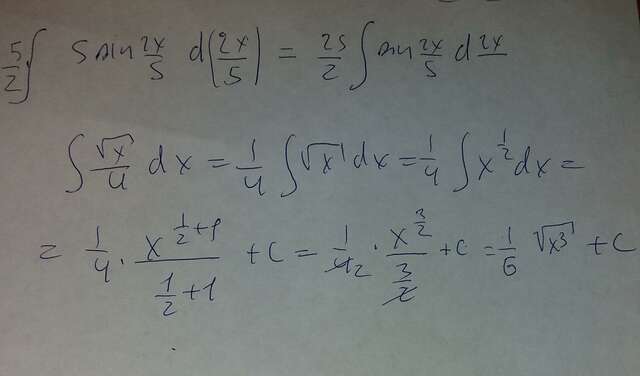 5/2 ∫ 5 sin 2x/5 d(2x/5) = 25/2 ∫ sin 2x/5 d 2x/
∫ √x/4 dx = 1/4 ∫ √x dx = 1/4 ∫ x^(1/2) dx =
= 1/4 · x^(1/2+1)/(1/2+1) + c = 1/4₂ · x^(3/2)/(3/2) + c = 1/6 √x³ + c